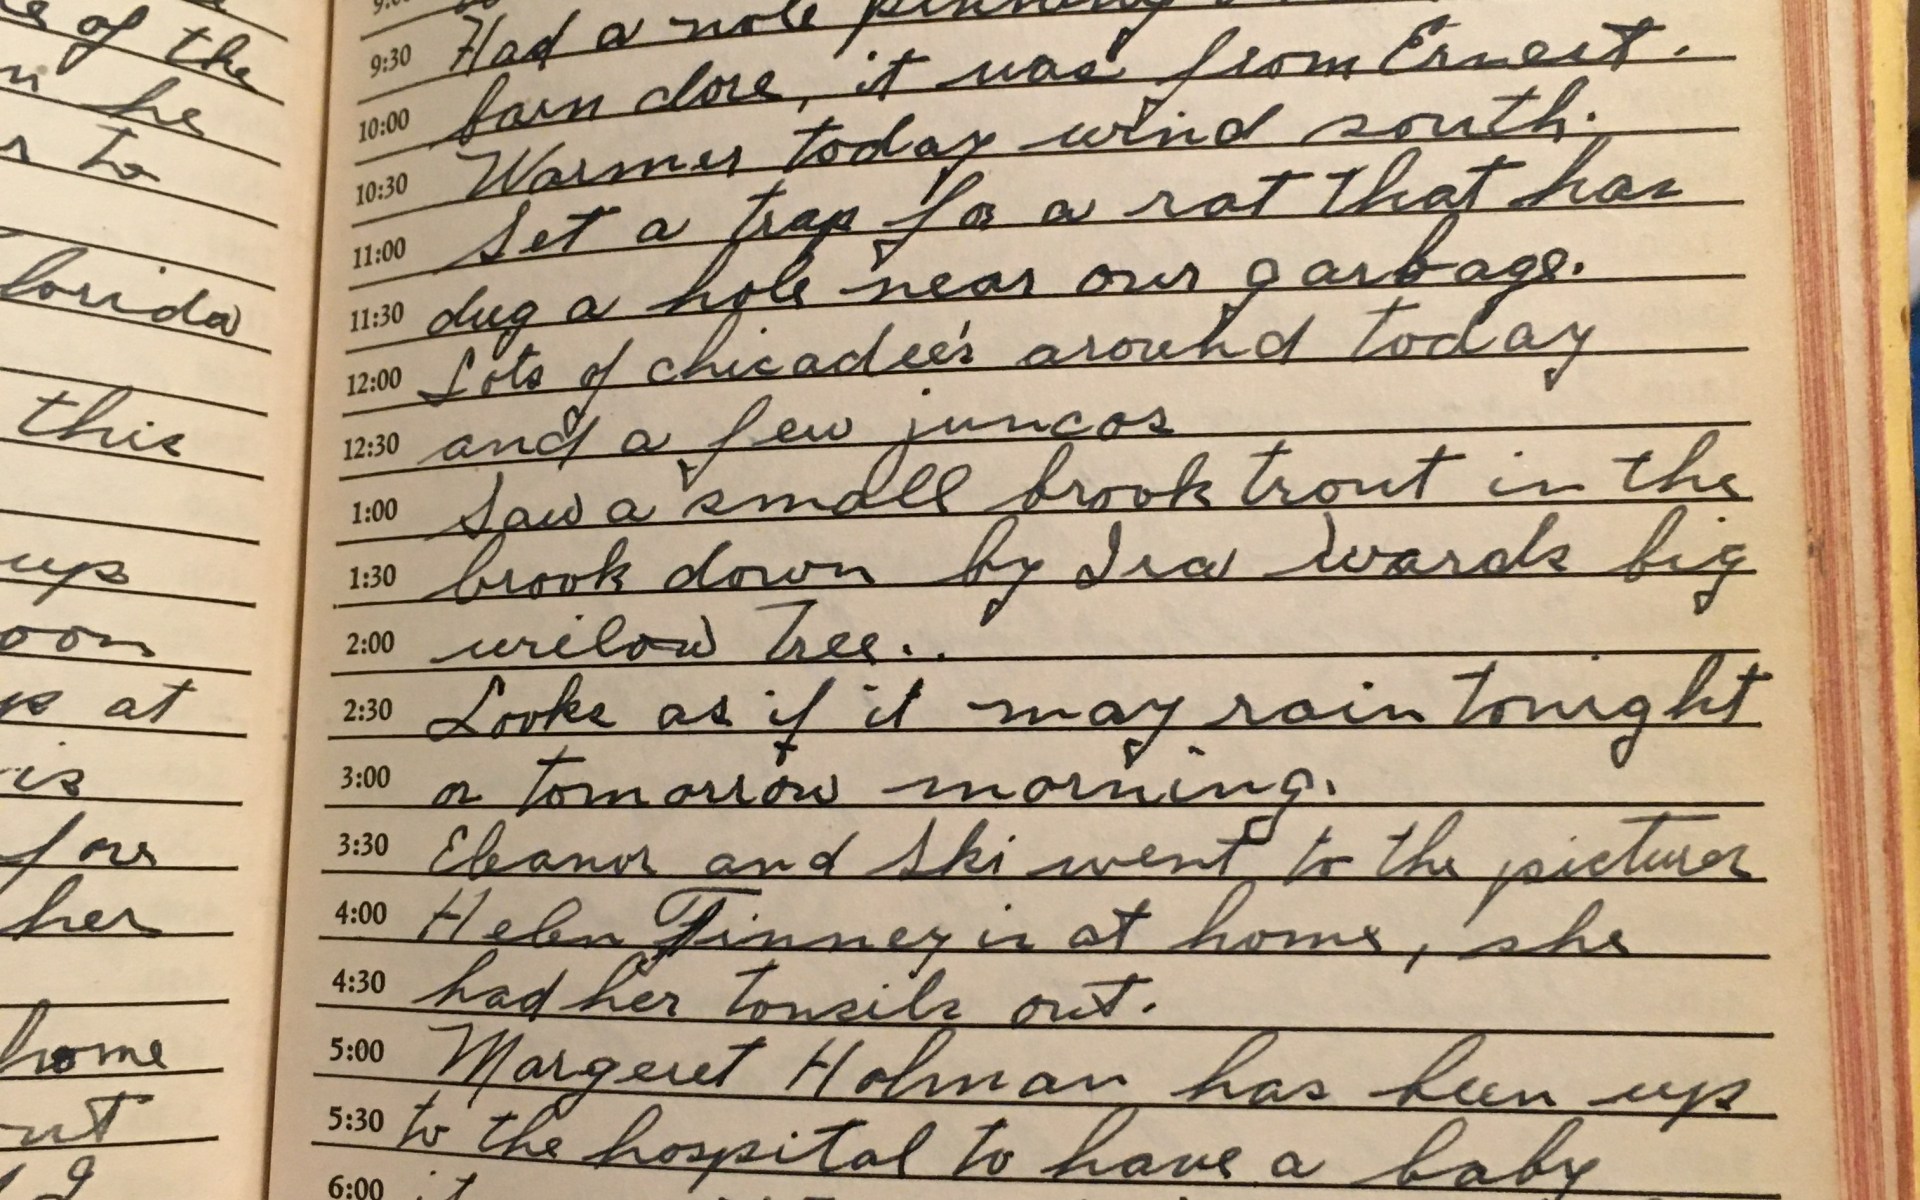 of the
he
to
this
up
at
is
for
her
home
9:30 Had a note
10:00 barn dore, it was from Ernest.
10:30 Warmer today wind south.
11:00 Set a trap for a rat that has
11:30 dug a hole near our garbage.
12:00 Lots of chicadee's around today
12:30 and a few juncos
1:00 Saw a small brook trout in the
1:30 brook down by Ira Wards big
2:00 wilow Tree..
2:30 Looks as if it may rain tonight
3:00 or tomorrow morning.
3:30 Eleanor and Ski went to the pictures
4:00 Helen Finney is at home, she
4:30 had her tonsils out.
5:00 Margeret Holman has been up
5:30 to the hospital to have a baby
6:00 it